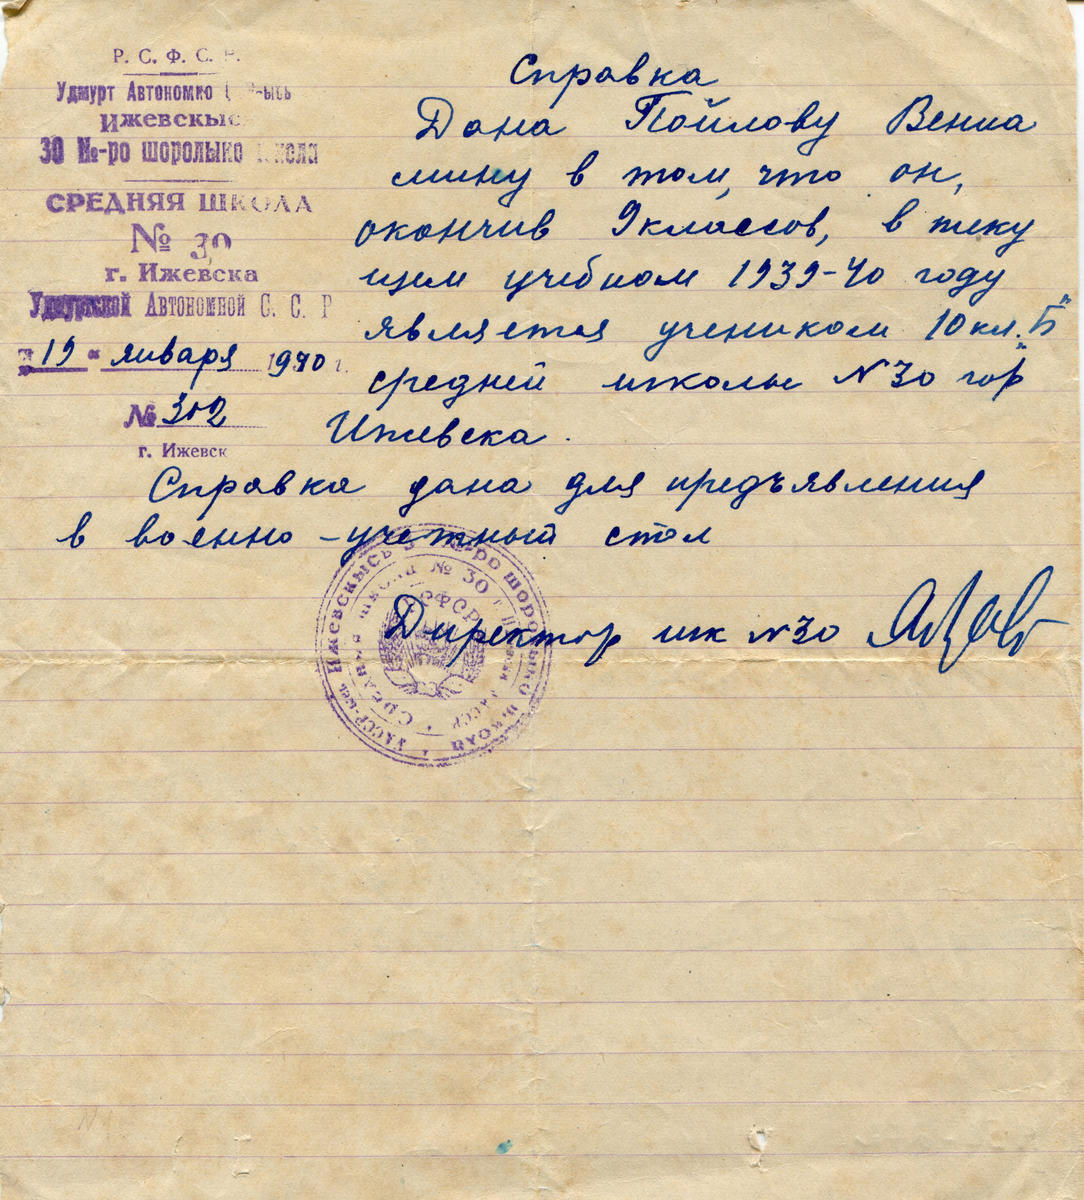 Р. С. Ф. С. Р.
Удмурт Автономно
Ижевскысь
30 №-ро шоролыко школа
СРЕДНЯЯ ШКОЛА
№ 30
г. Ижевска
Удмуртской Автономной С. С. Р
"19" января 1940 г.
№ 302
г. Ижевск
Справка
Дана Пойлову Вениа
мину в том, что он,
окончив 9 классов, в теку
щем учебном 1939-40 году
является учеником 10 кл. "Б"
средней школы N 30 гор
Ижевска.
Справка дана для предъявления
в военно-учетный стол
Директор шк N 30
УАССР-ысь Ижевскысь 30 №-ро шоролыко школа
Средняя школа № 30 г. Ижевска УАССР
РСФСР